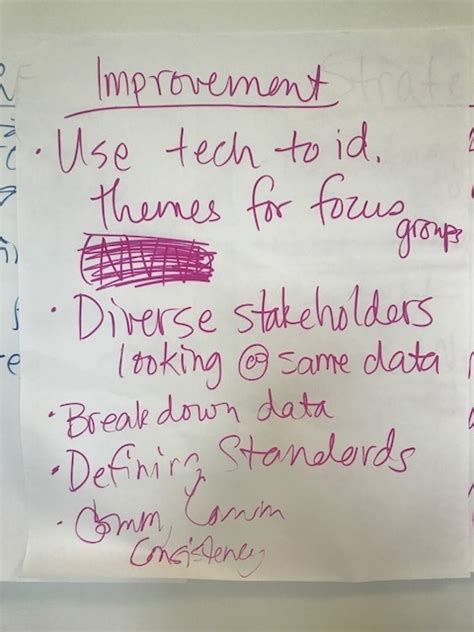 Improvement
• Use tech to id.
themes for focus
groups
• Diverse stakeholders
looking @ same data
• Breakdown data
• Defining Standards
• Comm, Comm
Consistency